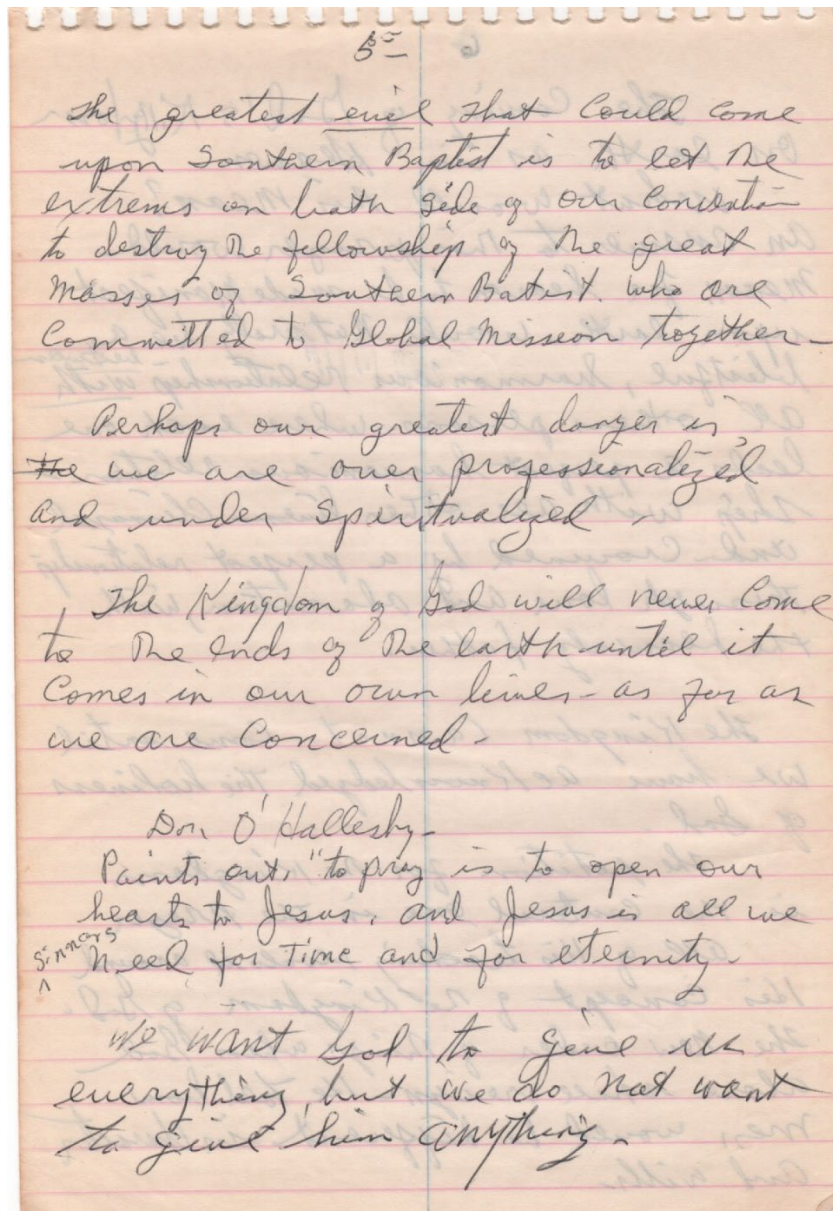 5-
The greatest evil that could come
upon Southern Baptist is to let the
extrems on both side of our Convention
to destroy the fellowship of the great
masses of Southern Batist. who are
Committed to Global Mission together-
Perhaps our greatest danger is
the we are over professionalized
and under Spiritualized.
The Kingdom of God will never come
to the ends of the earth until it
Comes in our own lives - as far as
we are Concerned-
Don O'Hallesby-
Points out, "to pray is to open our
hearts to Jesus. and Jesus is all we
sinners need for Time and for eternity.
We want God to give us
everything, but we do not want
to give him anything.